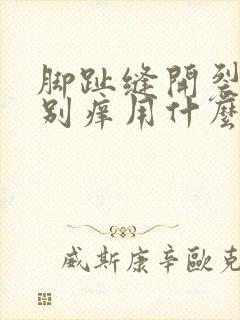 脚趾缝開裂
别痒用什麼
威斯康辛歐克